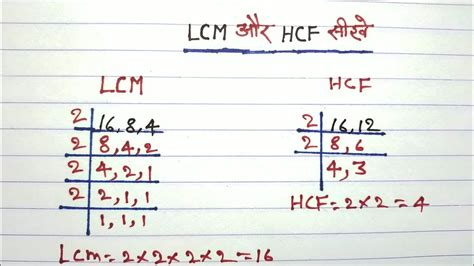 LCM और HCF सीखे
LCM
2 | 16, 8, 4
2 | 8, 4, 2
2 | 4, 2, 1
2 | 2, 1, 1
1, 1, 1
Lcm = 2×2×2×2 = 16
HCF
2 | 16, 12
2 | 8, 6
4, 3
HCF = 2×2 = 4